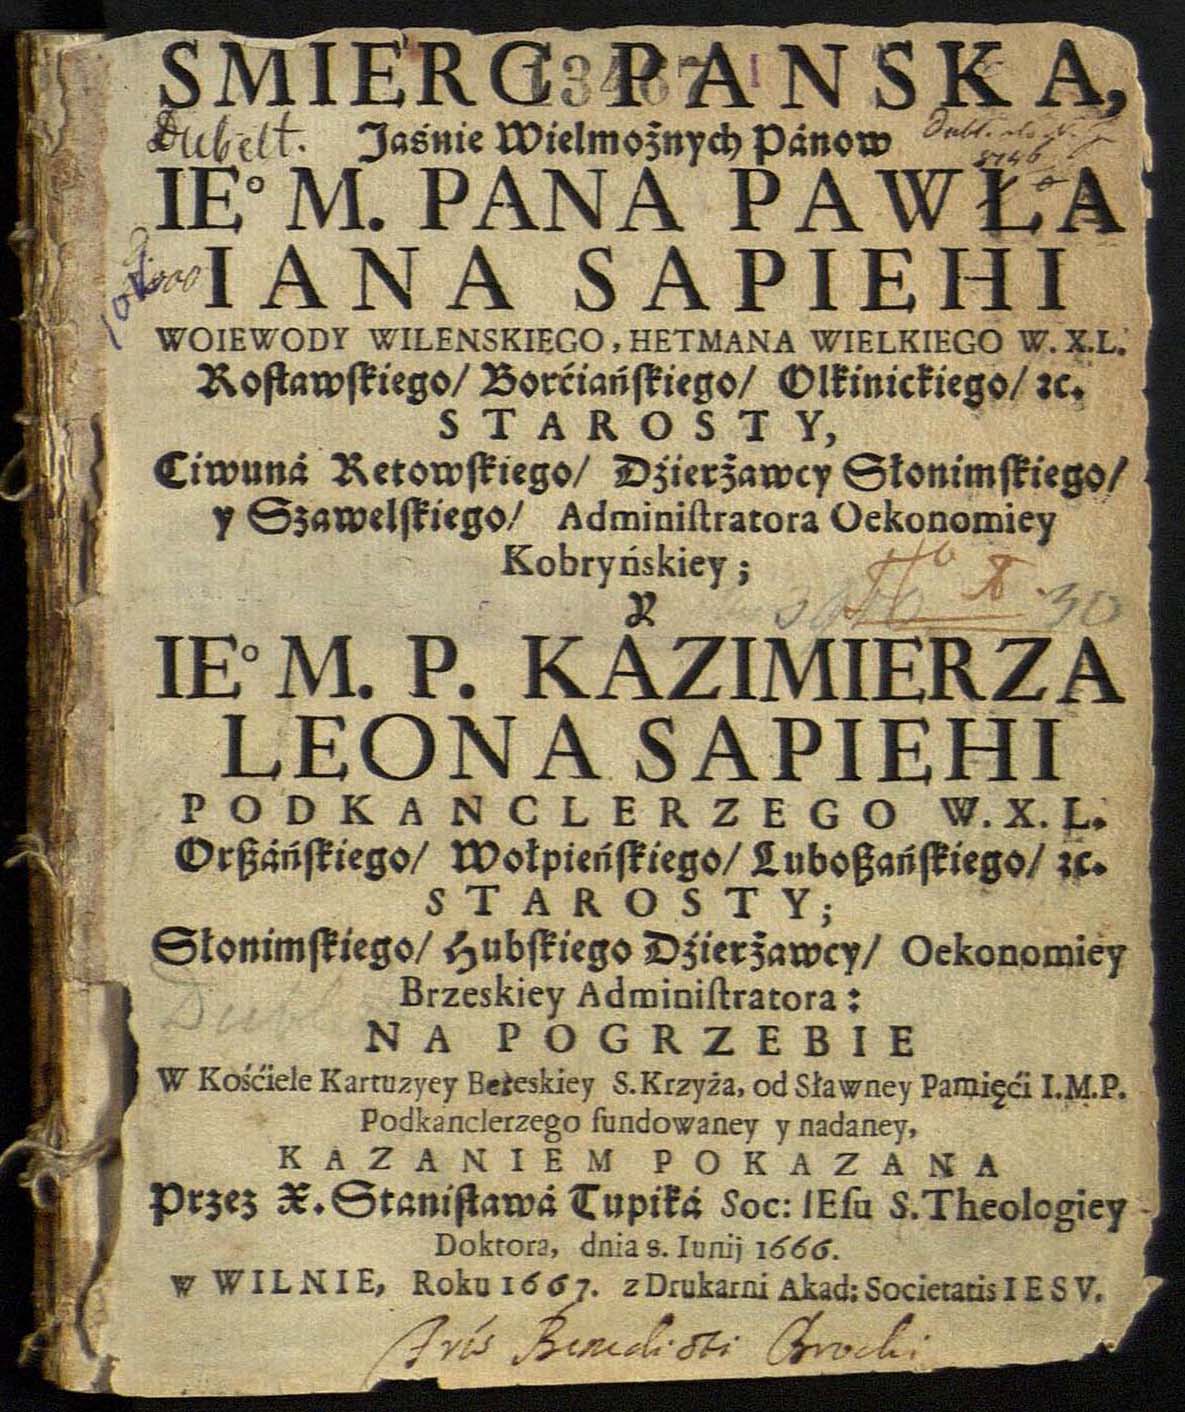 SMIERC PANSKA,
13467 I
Dubelt. Jaśnie Wielmożnych Pánow
IE° M. PANA PAWŁA
IANA SAPIEHI
WOIEWODY WILENSKIEGO, HETMANA WIELKIEGO W. X.L.
Rosławskiego/ Borćiańskiego/ Olkinickiego/ ꝛc.
STAROSTY,
Ciwuná Retowskiego/ Dźierżawcy Słonimskiego/
y Szawelskiego/ Adminiſtratora Oekonomiey
Kobryńskiey;
Y
IE° M. P. KAZIMIERZA
LEONA SAPIEHI
PODKANCLERZEGO W. X. L.
Orßáńſkiego/ Wołpieńſkiego/ Luboßańſkiego/ ꝛc.
STAROSTY;
Słonimſkiego/ Hubſkiego Dźierżawcy/ Oekonomiey
Brzeskiey Adminiſtratora:
NA POGRZEBIE
W Kośćiele Kartuzyey Bereskiey S. Krzyża, od Sławney Pamięći I.M.P.
Podkanclerzego fundowaney y nadaney,
KAZANIEM POKAZANA
Przez X. Stanisławá Tupiká Soc: IEſu S. Theologiey
Doktora, dnia 8. Iunij 1666.
w WILNIE, Roku 1667. z Drukarni Akad: Societatis IESV.